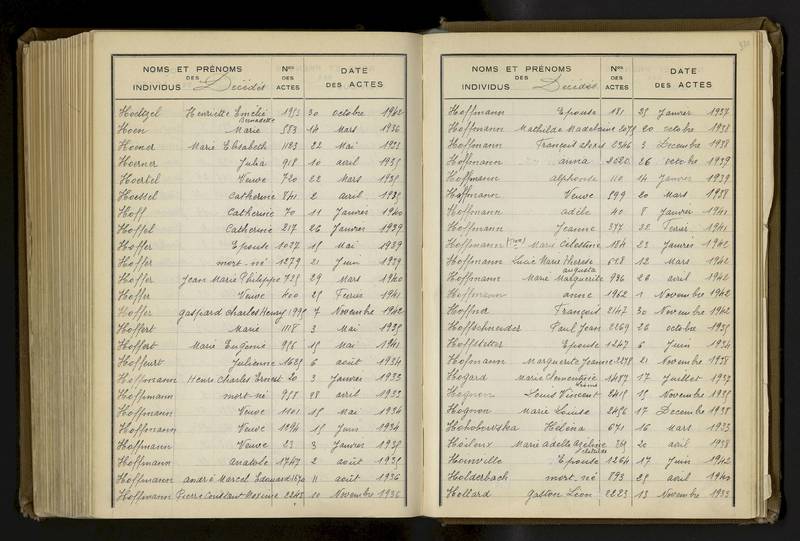 NOMS ET PRÉNOMS DES INDIVIDUS Décédés Nos DES ACTES DATE DES ACTES
Hoetzel Henriette Emélie Bernadette 1953 30 octobre 1942
Hoen Marie 553 14 Mars 1936
Hoener Marie Elisabeth 1183 22 Mai 1933
Hoerner Julia 918 10 avril 1935
Hoertel Veuve 720 22 Mars 1935
Hoessel Catherine 841 2 avril 1935
Hoff Catherine 70 11 Janvier 1940
Hoffel Catherine 217 26 Janvier 1939
Hoffer Epouse 1037 15 Mai 1939
Hoffer mort-né 1279 21 Juin 1939
Hoffer Jean Marie Philippe 725 29 Mars 1940
Hoffer Veuve 400 25 Février 1941
Hoffer Gaspard Charles Henry 1995 7 Novembre 1942
Hoffert Marie 1118 3 Mai 1935
Hoffert Marie Eugénie 956 15 Mai 1941
Hoffeurt Julienne 1625 6 août 1934
Hoffmann Henri Charles Ernest 20 3 Janvier 1933
Hoffmann mort né 958 28 avril 1933
Hoffmann Veuve 1101 18 Mai 1934
Hoffmann Veuve 1294 15 Juin 1934
Hoffmann Veuve 23 3 Janvier 1935
Hoffmann Anatole 1747 2 août 1935
Hoffmann André Marcel Edouard 1570 11 août 1936
Hoffmann Pierre Constant Maxime 2245 10 Novembre 1936
NOMS ET PRÉNOMS DES INDIVIDUS Décédés Nos DES ACTES DATE DES ACTES
Hoffmann Epouse 181 25 Janvier 1937
Hoffmann Mathilde Madelaine 2075 20 octobre 1938
Hoffmann François alexis 2346 3 Décembre 1938
Hoffmann anna 2020 26 octobre 1939
Hoffmann alphonse 110 14 Janvier 1939
Hoffmann Veuve 599 20 Mars 1938
Hoffmann adèle 40 8 Janvier 1941
Hoffmann Jeanne 377 22 Février 1941
Hoffmann Marie Célestine 184 23 Janvier 1942
Hoffmann Lucie Marie Thérèse 528 12 Mars 1942
Hoffmann Marie Marguerite augusta 936 26 avril 1942
Hoffmann anne 1962 1 Novembre 1942
Hoffner François 2147 30 Novembre 1942
Hoffschneider Paul Jean 2269 26 octobre 1935
Hoffstetter Epouse 1247 6 Juin 1934
Hofmann Marguerite Jeanne 2275 21 Novembre 1938
Hogard Marie Clementine 1487 17 Juillet 1937
Hognon Louis Vincent 2415 15 Novembre 1935
Hognon Marie Louise 2456 17 Décembre 1938
Hohoborska Héléna 671 16 Mars 1933
Hoiloux Marie Adelle 20 avril 1938
Hoinville Epouse 1264 17 Juin 1942
Holderbach mort né 893 25 avril 1940
Hollard Gaston Léon 2223 13 Novembre 1933